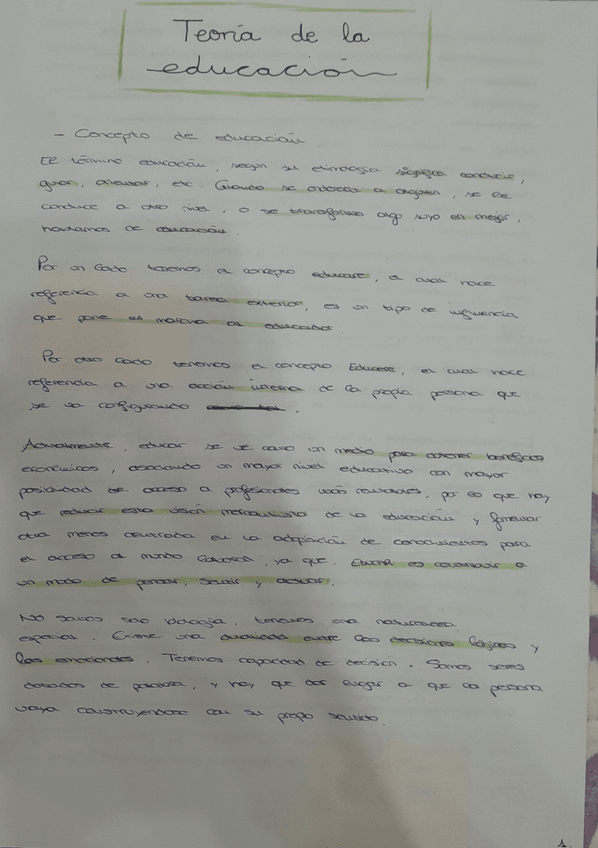 Teoría de la
educación
- Concepto de educación.
El término educación, según su etimología significa conducir,
guiar, orientar, etc. Cuando se orienta a alguien, se le
conduce a otro nivel, o se transforma algo suyo en mejor,
hablamos de educación.
Por un lado tenemos el concepto educare, el cual hace
referencia a una tarea exterior, es un tipo de influencia
que pone en marcha el educador.
Por otro lado tenemos el concepto Educere, el cual hace
referencia a una acción interna de la propia persona que
se va configurando.
Actualmente, educar se ve como un medio para obtener beneficios
económicos, asociando un mayor nivel educativo con mayor
posibilidad de acceso a profesiones más rentables, por eso que hay
que reducir esta visión mercantilista de la educación y fomentar
otra menos centrada en la adquisición de conocimientos para
el acceso al mundo laboral, ya que, Educar es contribuir a
un modo de pensar, sentir y actuar.
No somos solo biología, tenemos una naturaleza
especial. Existe una dualidad entre las decisiones lógicas y
las emocionales. Tenemos capacidad de decisión. Somos seres
dotados de palabra, y hay que dar lugar a que la persona
vaya construyéndose con su propio sentido.
1